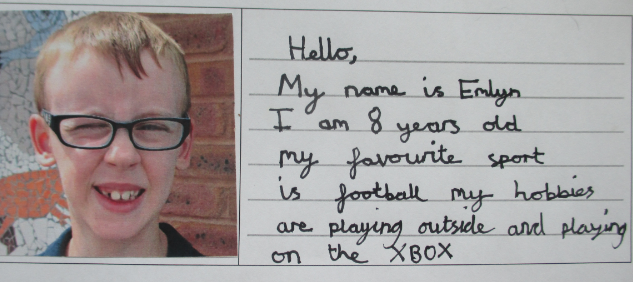 Hello,
My name is Emlyn
I am 8 years old
my favourite sport
is football my hobbies
are playing outside and playing
on the XBOX